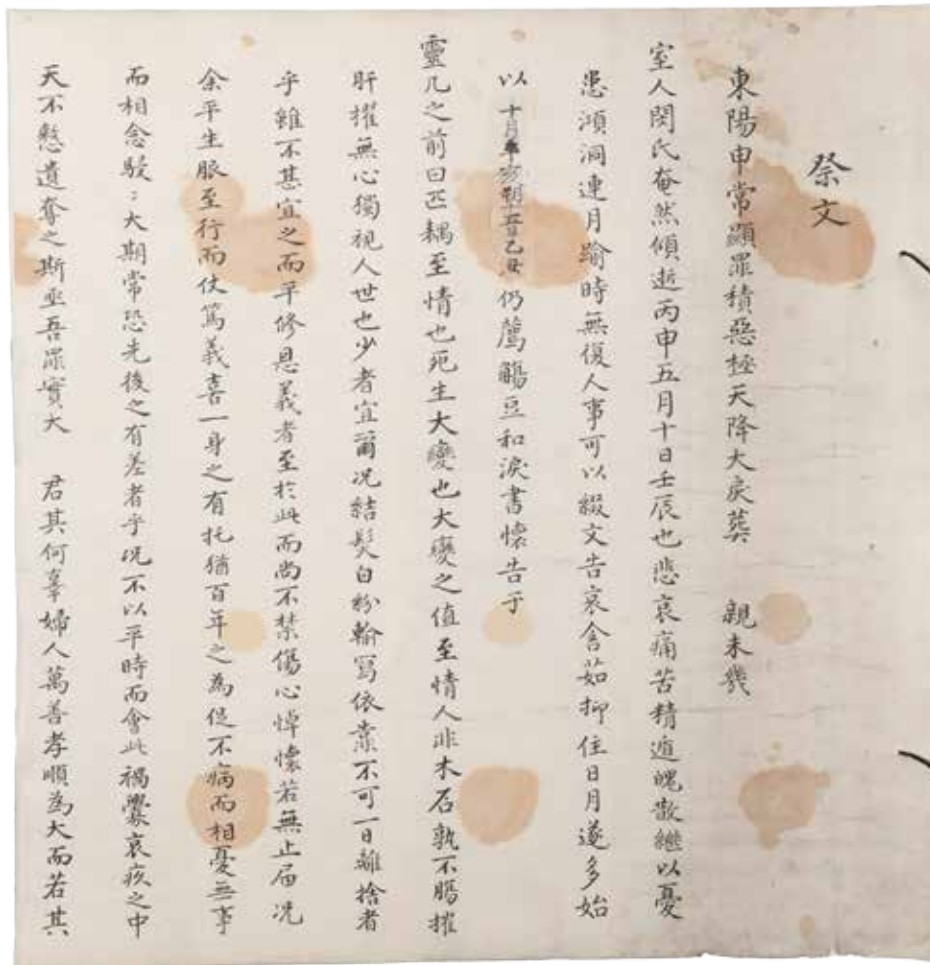 祭文
東陽申常顯罪積惡極天降大戾葬 親未幾
室人閔氏奄然傾逝丙申五月十日壬辰也悲哀痛苦精遁魄散繼以憂
患澒洞連月踰時無復人事可以綴文告哀含茹抑住日月遂多始
以十月辛亥朔 乙丑仍薦觴豆和淚書懷告于
靈几之前曰匹耦至情也死生大變也大變之値至情人非木石孰不腸摧
肝摧無心獨視人世也少者宜爾况結髮白粉輸寫依靠不可一日離捨者
乎雖不甚宜之而平修恩義者至於此而尚不禁傷心悼懷若無止届况
余平生服至行而仗篤義喜一身之有托猶百年之為促不病而相憂無事
而相念駸〻大期常恐先後之有差者乎况不以平時而會此禍釁哀疚之中
天不憖遺奪之斯亟吾罪實大 君其何辜婦人萬善孝順為大而若其